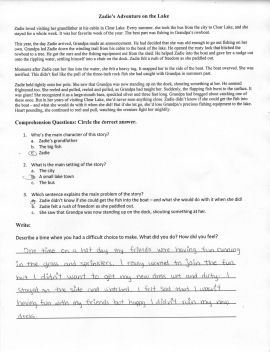 Zadie's Adventure on the Lake
Zadie loved visiting her grandfather at his cabin in Clear Lake. Every summer, she took the bus from the city to Clear Lake, and she
stayed for a whole week. It was her favorite week of the year. The best part was fishing in Grandpa's rowboat.
This year, the day Zadie arrived, Grandpa made an announcement. He had decided that she was old enough to go out fishing on her
own. Grandpa led Zadie down the winding trail from his cabin to the edge of the lake. He opened the rusty lock that hitched the
rowboat to a tree. He got the oars and the fishing equipment out from the shed. He helped Zadie into the boat and gave her a nudge out
onto the rippling water, settling himself into a chair on the dock. Zadie felt a rush of freedom as she paddled out.
Moments after Zadie cast her line into the water, she felt a heavy tug. It snapped her to the side of the boat. The boat swerved. She was
terrified. This didn't feel like the pull of the three-inch rock fish she had caught with Grandpa in summers past.
Zadie held tightly onto her pole. She saw that Grandpa was now standing up on the dock, shouting something at her. He seemed
frightened too. She reeled and pulled, reeled and pulled, as Grandpa had taught her. Suddenly, the flapping fish burst to the surface. It
was giant! She recognized it as a large-mouth bass, speckled silver and three feet long. Grandpa had bragged about catching one of
these once. But in her years of visiting Clear Lake, she'd never seen anything close. Zadie didn't know if she could get the fish into the
boat – and what she would do with it when she did! But if she let go, she'd lose Grandpa's precious fishing equipment to the lake.
Heart pounding, she continued to reel and pull, watching the creature fight for its life.
Comprehension Questions: Circle the correct answer.
1. Who's the main character of this story?
a. Zadie's grandfather
b. The big fish
c. Zadie
2. What is the main setting of the story?
a. The city
b. A small lake town
c. The bus
3. Which sentence explains the main problem of the story?
a. Zadie didn't know if she could get the fish into the boat – and what she would do with it when she did!
b. Zadie felt a rush of freedom as she paddled out.
c. She saw that Grandpa was now standing up on the dock, shouting something at her.
Write:
Describe a time when you had a difficult choice to make. What did you do? How did you feel?
One time on a hot day my friends were having fun running
in the grass and sprinklers. I really wanted to join the fun
but I didn't want to get my new dress wet and dirty. I
stayed on the side and watched. I felt sad that I wasn't
having fun with my friends but happy I didn't ruin my new
dress.